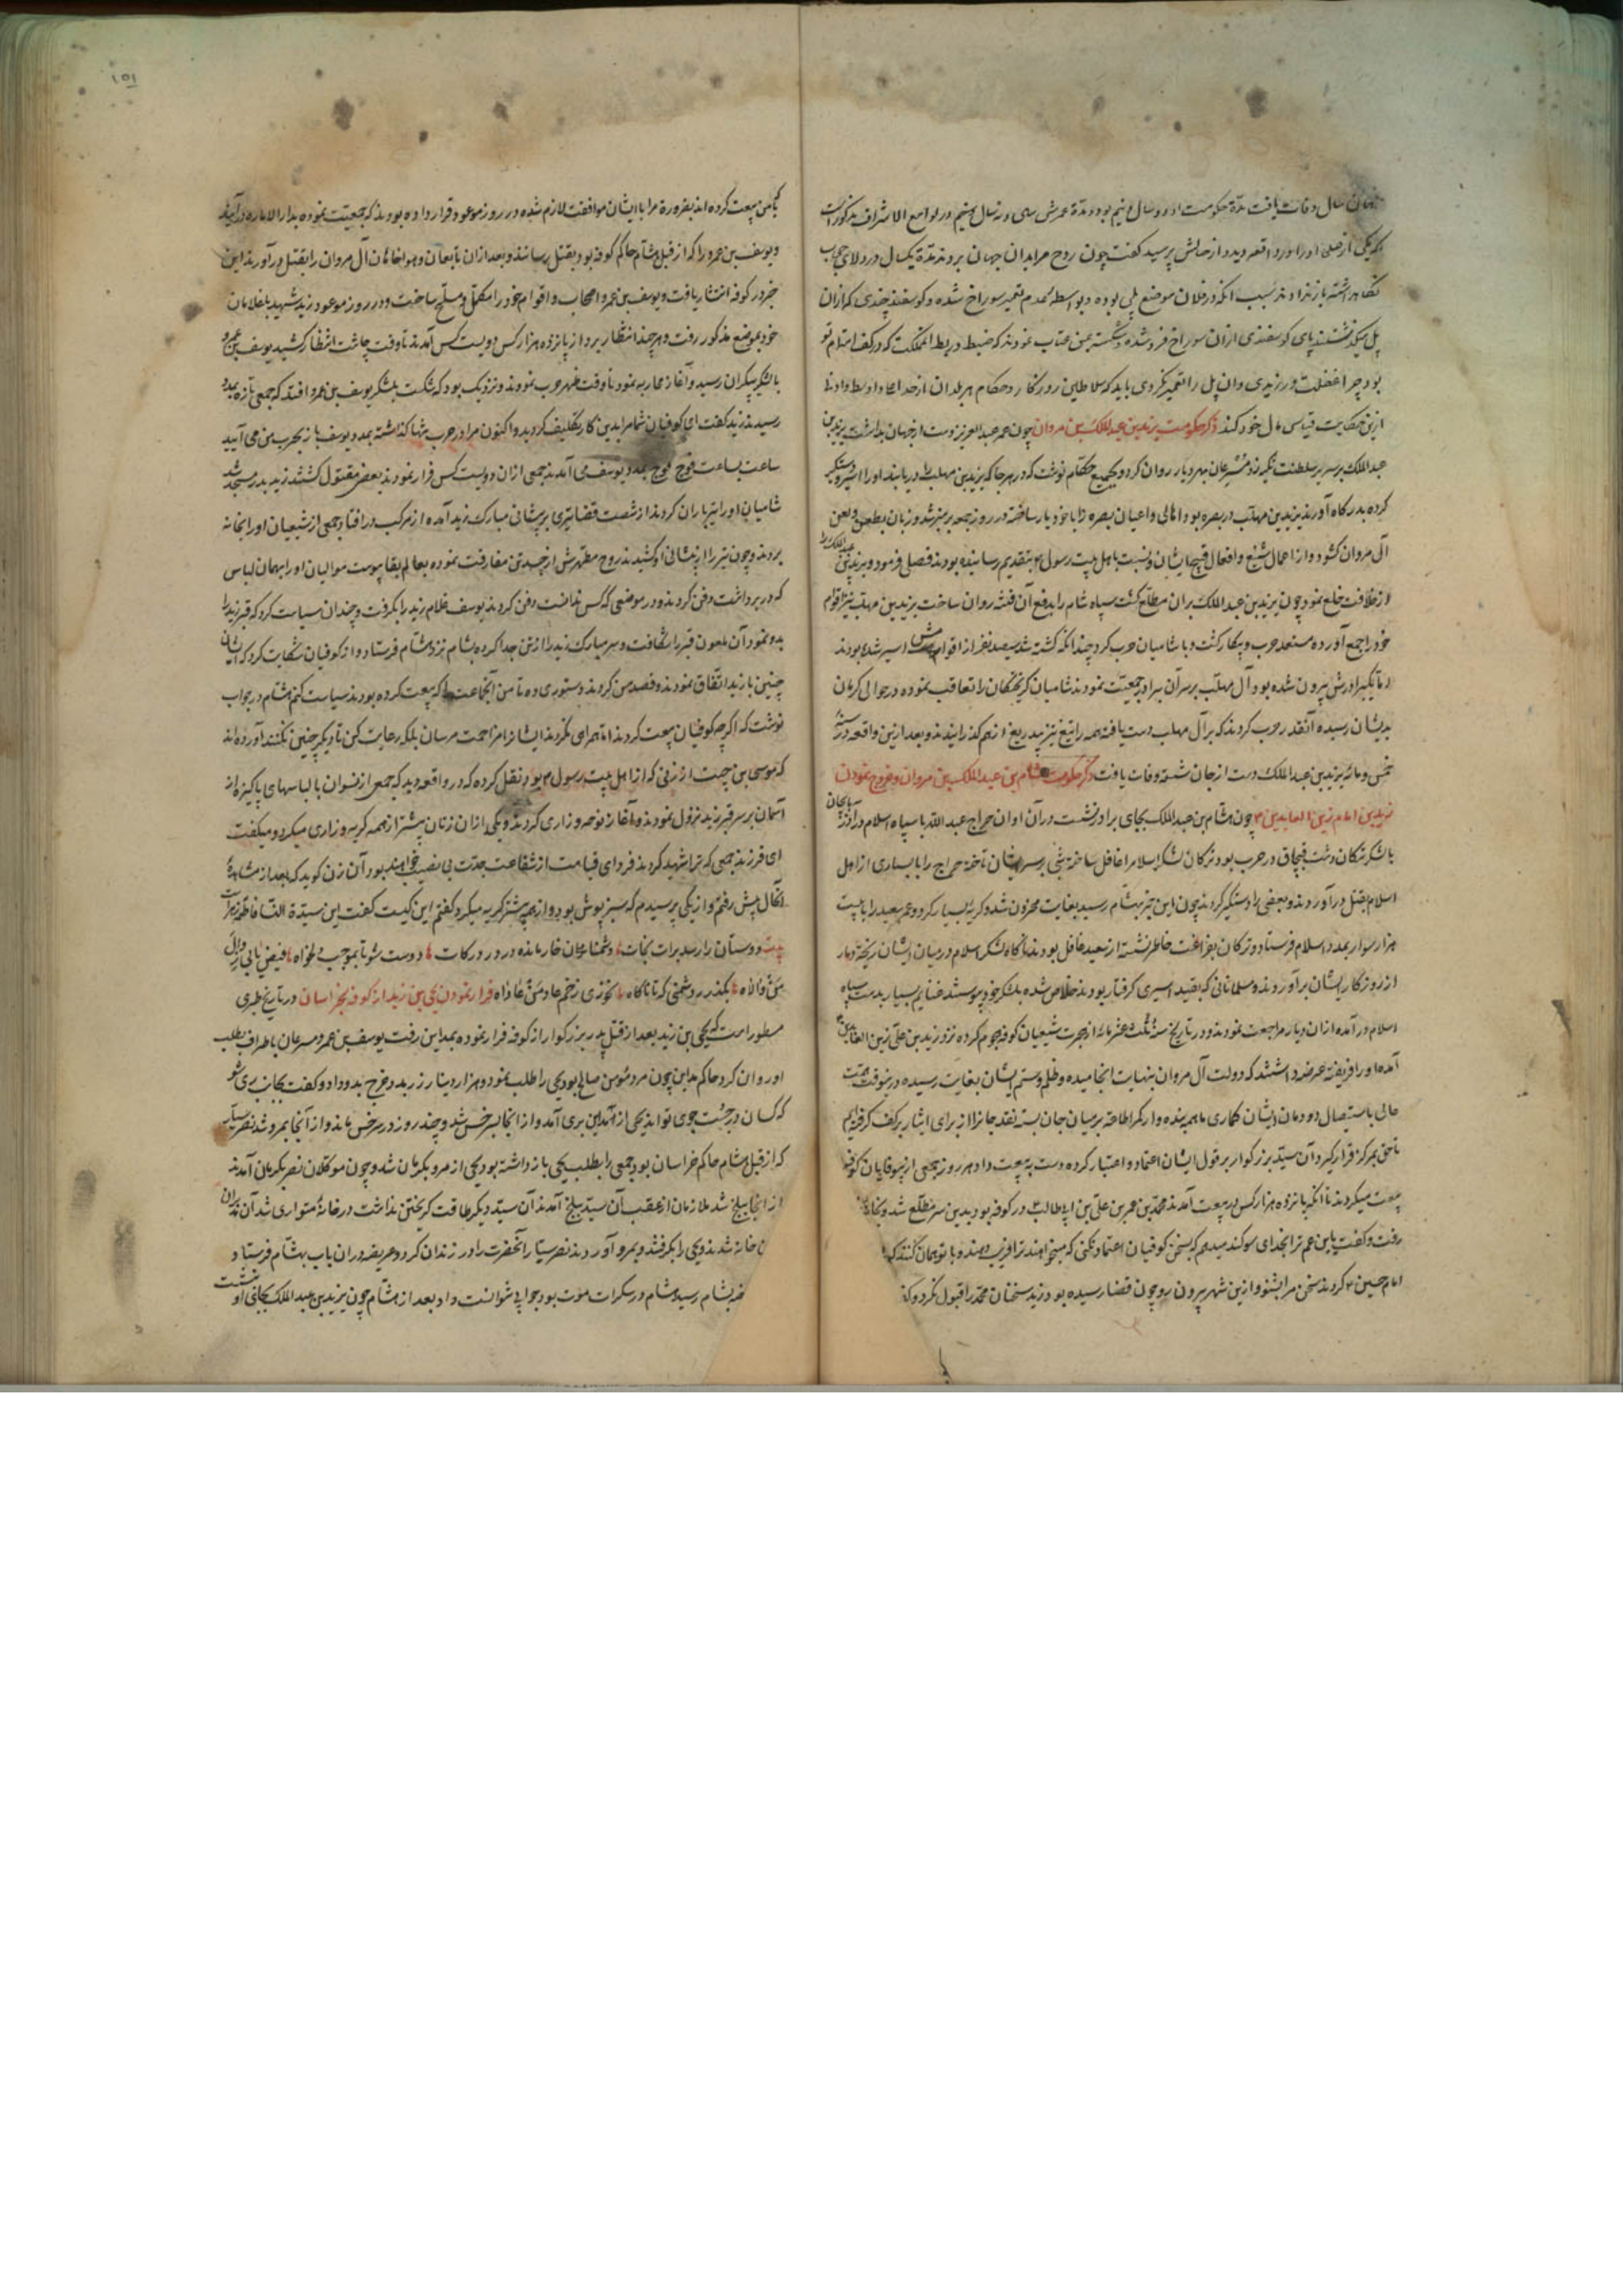 سال وفات یافت مدّة حکومت او دو سال و نیم بود و مدّة عمرش سی و نه سال و نیم در لوامع الاشراف مذکور است
که یکی از صلحا او را در واقعه دید و از حالش پرسید گفت چون روح مرا بدان جهان بردند مدّة یکسال در
نگاه داشته باز بسبب آنکه در فلان موضع پلی بوده و بواسطه عدم تعمیر سوراخ شده و گوسفند چندی که از ان
پل میگذشتند پای گوسفندی از ان سوراخ فرو شده و شکسته بمن عتاب نمودند که ضبط و ربط مملکت که در کف اهتمام تو
بود چرا غفلت ورزیدی و ان پل را تعمیر نکردی باید که سلاطین روزگار و حکام هر بلدان از
ازین حکایت قیاسی حال خود کنند ذکر حکومت یزید بن عبدالملک بن مروان چون عمر عبدالعزیز دست از جهان بداشت یزید بن
عبدالملک بر سریر سلطنت تکیه زد مسرعان بهر دیار روان کرد و بجمیع حکام نوشت که در هر جا که یزید بن مهلب را دریابند او را اسیر و دستگیر
کرده بدرگاه آورند یزید بن مهلب در بصره بود اهالی و اعیان بصره را با خود یار ساخته در روز جمعه بر منبر شد و زبان بطعن و لعن
آل مروان گشود و از اعمال شنیع و افعال قبیح ایشان که نسبت باهل بیت رسول بتقدیم رسانیده بودند فصلی فرمود و یزید بن عبدالملک را
از خلافت خلع نمود و چون یزید بن عبدالملک بران مطلع گشت سپاه شام را بدفع آن فتنه روان ساخت یزید بن مهلب نیز اقوام
خود را جمع آورده مستعد حرب و پیکار گشت و با شامیان حرب کرد چندانکه کشته شد سیصد نفر از اقوامش اسیر شده بودند
برادرش بیرون شده بود آل مهلب بر سر آن برادر جمعیّت نمودند شامیان گریختگان را تعاقب نموده در حوالی کرمان
بدیشان رسیده آنقدر حرب کردند که بر آل مهلب دست یافته همه را بتیغ تیز بیدریغ از هم گذرانیدند و بعد ازین واقعه در سنهٔ
خمس و مائه یزید بن عبدالملک دست از جان شسته وفات یافت ذکر حکومت هشام بن عبدالملک بن مروان و خروج نمودن
زید بن امام زین العابدین چون هشام بن عبدالملک بجای برادر نشست در آن اوان جراح عبدالله با سپاه اسلام در آذربایجان
با لشکر ترکان دشت قبچاق در حرب بود ترکان لشکر اسلام را غافل ساخته شبی بر سر ایشان تاخته جراح را با بسیاری از اهل
اسلام بقتل در آوردند و بعضی را دستگیر کردند چون این خبر بهشام رسید بغایت محزون شد و گریهٔ بسیار کرد و عمر سعید را با بیست
هزار سوار بمدد اسلام فرستاد و ترکان بفراغت خاطر نشسته از سعید غافل بودند ناگاه لشکر اسلام در میان ایشان ریخته دمار
از روزگار ایشان برآوردند و مسلمانانی که بقید اسیری گرفتار بودند خلاص شده بلشکر خود پیوستند غنایم بسیار بدست سپاه
اسلام درآمده از ان دیار مراجعت نمودند و در تاریخ سنهٔ ثلث عشر مائه از هجرت شیعیان کوفه هجوم کرده نزد زید بن علی زین العابدین
آمده او را فریفته عرضه داشتند که دولت آل مروان بنهایت انجامیده و ظلم و ستم ایشان بغایت رسیده درینوقت
باستیصال دودمان ایشان گماری ما همه بنده وار کمر اطاعه بر میان جان بسته نقد جانرا از برای ایثار بر کف گرفته ایم
تا حق بمرکز قرار گیرد آن سیّد بزرگوار بر قول ایشان اعتماد و اعتبار کرده دست به بیعت داد هر روز جمعی از بیوفایان کوفه
بیعت میکردند تا آنکه پانزده هزار کس در بیعت آمدند محمّد بن عمر بن علی بن ابیطالب در کوفه بود بدین سر مطّلع شد و بخانه
رفت و گفت یابن عم ترا بخدای سوگند میدهم که بسخن کوفیان اعتماد نکنی که میخواهند ترا فریب دهند و با تو همان کنند که
امام حسین کردند سخن مرا بشنو و ازین شهر بیرون رو چون قضا رسیده بود زید سخنان محمّد را قبول نکرد و
۱۵۱
با من بیعت کرده اند بضرورة مرا با ایشان موافقت لازم شده در روز موعود قرار داده بودند که جمعیّت نموده بدار الاماره درآیند
و یوسف بن عمرو را که از قبل هشام حاکم کوفه بود بقتل رسانند و بعد از ان تابعان و هواخاهان آل مروان را بقتل درآورند این
خبر در کوفه انتشار یافت و یوسف بن عمر و اصحاب و اقوام خود را مکمّل و مسلّح ساخت و در روز موعود زید شهید با غلامان
خود بموضع مذکور رفت و هر چند انتظار برد از پانزده هزار کس دویست کس آمدند تا وقت چاشت انتظار کشید یوسف بن عمرو
با لشکر بیکران رسید و آغاز محاربه نمود تا وقت ظهر حرب نمودند و نزدیک بود که شکست بلشکر یوسف بن عمرو افتد که جمعی تازه بمدد
رسیدند زید گفت ای کوفیان شما مرا بدین کار تکلیف کردید و اکنون مرا در حرب تنها گذاشته بمدد یوسف باز بحرب من می آیید
ساعت بساعت فوج فوج بمدد یوسف می آمدند جمعی از ان دویست کس فرار نمودند بعضی مقتول گشتند زید بدر مسجد شد
شامیان او را تیرباران کردند از شصت قضا تیری بر پیشانی مبارک زید آمده از مرکب درافتاد جمعی از شیعیان او را بخانه
بردند و چون تیر را از پیشانی او کشیدند روح مطهّرش از جسد تن مفارقت نموده بعالم بقا پیوست موالیان او را بهمان لباس
که در بر داشت دفن کردند و در موضعی که کس ندانست دفن کردند یوسف غلام زید را بگرفت و چندان سیاست کرد که قبر زید را
بدو نمود آن ملعون قبر را بشکافت و سر مبارک زید را از تن جدا کرده بشام نزد هشام فرستاد و از کوفیان شکایت کرد که ایشان
چنین با زید اتفاق نمودند و قصد من کردند دستوری ده تا من آنجماعت را که بیعت کرده بودند سیاست کنم هشام در جواب
نوشت که اگرچه کوفیان بیعت کردند امّا همراهی نکردند ایشانرا مزاحمت مرسان بلکه رعایت کن تا دیگر چنین نکنند آورده اند
که موسی بن حبیب از زنی که از اهل بیت رسول بود نقل کرده که در واقعه دید که جمعی از نسوان با لباسهای پاکیزه از
آسمان بر سر قبر زید نزول نمودند و آغاز نوحه و زاری کردند و یکی از ان زنان بیشتر از همه گریه و زاری میکرد و میگفت
ای فرزند جمعی که ترا شهید کردند فردای قیامت از شفاعت جدّت بی نصیب خواهند بود آن زن گوید که بعد از مشاهدهٔ
آنحال پیش رفتم و از یکی پرسیدم که سبز پوش بود و از همه بیشتر گریه میکرد گفتم این کیست گفت این سیّدة النسا فاطمه زهراست
بیت دوستان را رسد برات نجات دشمنان خار مانده در درکات دوست شو تا بموجب دلخواه فیض یابی ز وال
من والاه بگذر از دشمنی که تا ناگاه نخوری زخم عاد من عاداه فرار نمودن یحیی بن زید از کوفه بخراسان در تاریخ طبری
مسطور است که یحیی بن زید بعد از قتل پدر بزرگوار از کوفه فرار نموده بمداین رفت یوسف بن عمرو مسرعان باطراف بطلب
او روان کرد حاکم مداین چون مرد مؤمن صالح بود یحیی را طلب نمود و هزار دینار زر بدو خرج بدو داد و گفت بجانب ری شو
که کسان در جست جوی تو اند یحیی از مداین بری آمد و از انجا بسرخس شد و چند روز در سرخس ماند و از آنجا بمرو شد نصر سیّار
که از قبل هشام حاکم خراسان بود جمعی را بطلب یحیی باز داشته بود یحیی از مرو بکرمان شد و چون موکلان نصر بکرمان آمدند
از انجا ببلخ شد ملازمان از عقب آن سیّد ببلخ آمدند آن سیّد دیگر طاقت گریختن نداشت در خانهٔ متواری شد آن
خانه شدند و یحیی را بگرفتند و بمرو آوردند نصر سیّار آنحضرت را در زندان کرد و عریضه در ان باب بهشام فرستاد
بشام رسید و هشام در سکرات موت بود جوابی نتوانست داد بعد از هشام چون یزید بن عبدالملک بجای او نشست